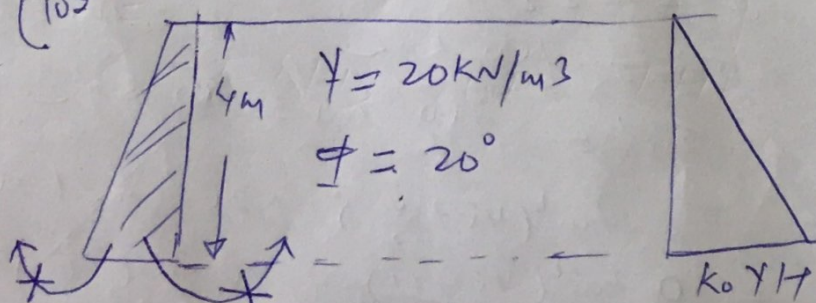 (10>
4m
γ = 20KN/m3
φ = 20°
K₀γH